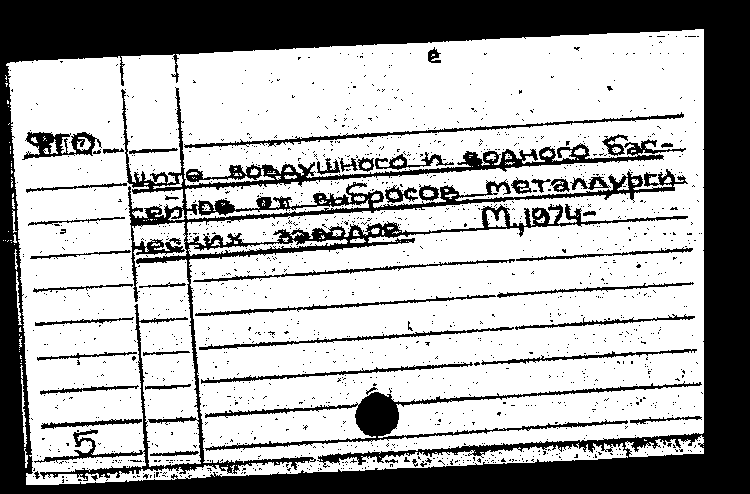 е
щите воздушного и водного бас-
сейнов от выбросов металлурги-
ческих заводов. М.,1974-
5